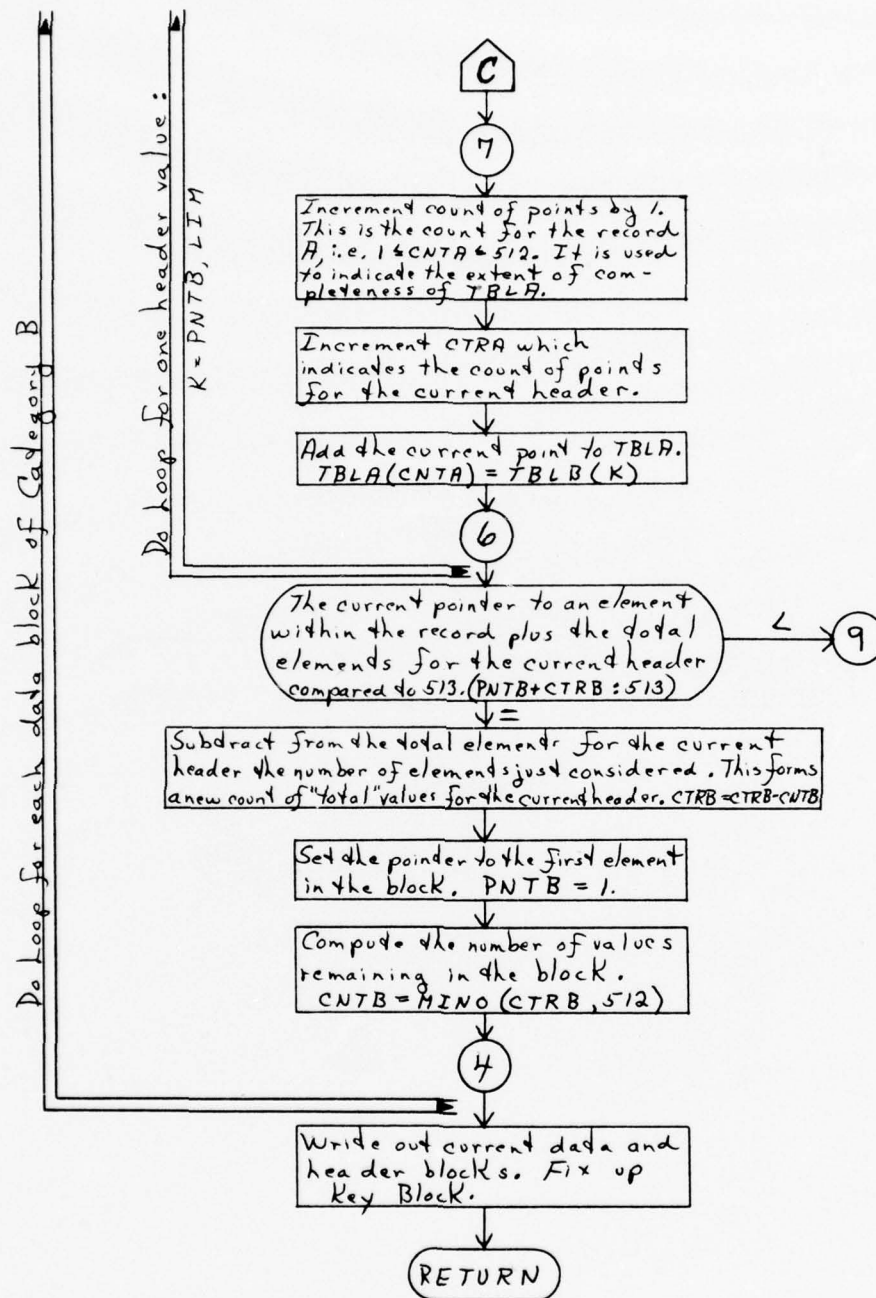 C
7
Do Loop for each data block of Category B
Do Loop for one header value:
K = PNTB, LIM
Increment count of points by 1.
This is the count for the record
A, i.e. 1 ≤ CNTA ≤ 512. It is used
to indicate the extent of com-
pleteness of TBLA.
Increment CTRA which
indicates the count of points
for the current header.
Add the current point to TBLA.
TBLA(CNTA) = TBLB(K)
6
The current pointer to an element
within the record plus the total
elements for the current header
compared to 513. (PNTB+CTRB : 513)
<
9
=
Subtract from the total elements for the current
header the number of elements just considered. This forms
a new count of "total" values for the current header. CTRB=CTRB-CNTB
Set the pointer to the first element
in the block. PNTB = 1.
Compute the number of values
remaining in the block.
CNTB = MINO (CTRB, 512)
4
Write out current data and
header blocks. Fix up
Key Block.
RETURN